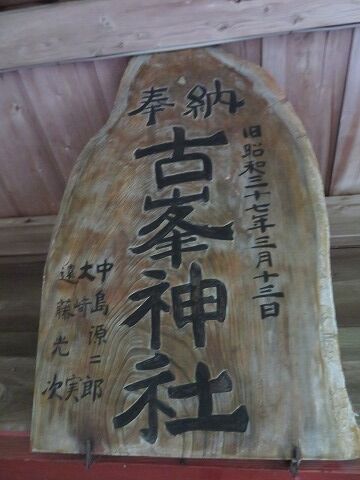 奉納
旧昭和三十七年三月十三日
古峯神社
中島源二郎
大崎 実
遠藤光次